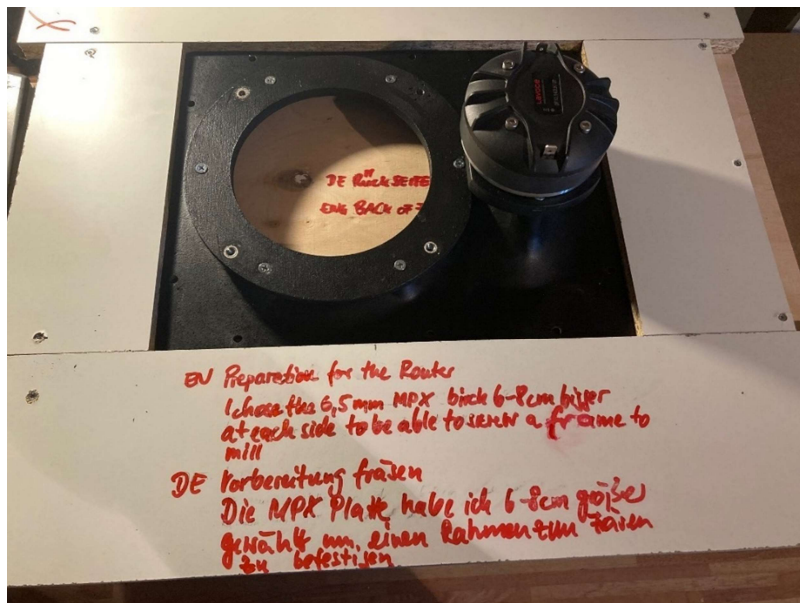 LAVOCE
DE RÜCKSEITE
ENG BACK OF
EN Preparation for the Router
I chose the 6,5mm MPX birch 6-8cm bigger
at each side to be able to screw a frame to
mill
DE Vorbereitung fräsen
Die MPX Platte habe ich 6-8cm größer
gewählt um einen Rahmen zum fräsen
zu befestigen